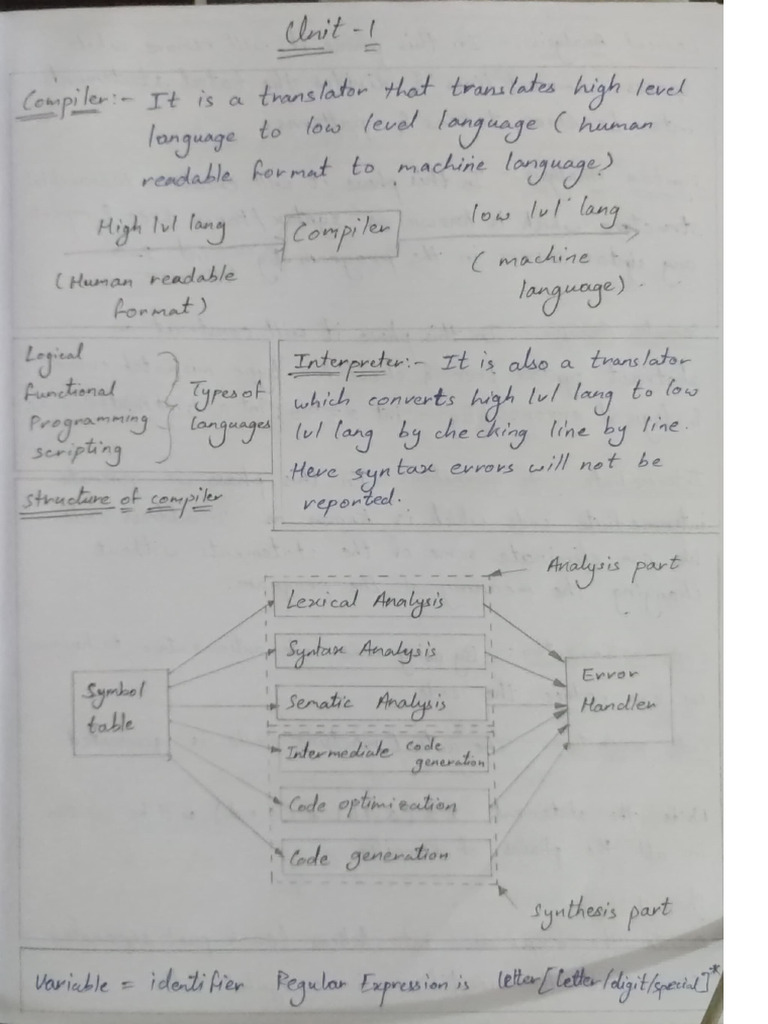 Unit - 1
Compiler:- It is a translator that translates high level
language to low level language (human
readable format to machine language)
High lvl lang
Compiler
low lvl lang
(Human readable
format)
(machine
language)
Logical
functional
Programming
scripting
Types of
languages
Interpreter:- It is also a translator
which converts high lvl lang to low
lvl lang by checking line by line.
Here syntax errors will not be
reported.
structure of compiler
Analysis part
Lexical Analysis
Syntax Analysis
Sematic Analysis
Intermediate code
generation
Code optimization
Code generation
Symbol
table
Error
Handler
Synthesis part
Variable = identifier Regular Expression is letter[letter/digit/special]*